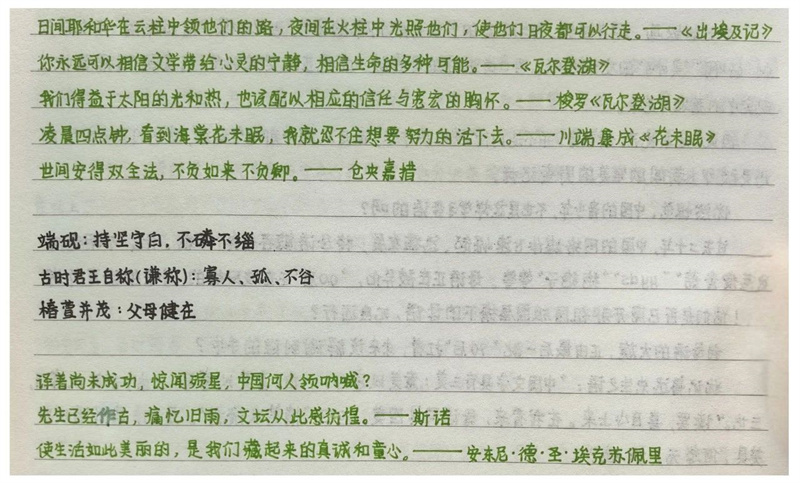 日间耶和华在云柱中领他们的路，夜间在火柱中光照他们，使他们日夜都可以行走。——《出埃及记》
你永远可以相信文学带给心灵的宁静，相信生命的多种可能。——《瓦尔登湖》
我们得益于太阳的光和热，也该配以相应的信任与宽宏的胸怀。——梭罗《瓦尔登湖》
凌晨四点钟，看到海棠花未眠，我就忍不住想要努力的活下去。——川端康成《花未眠》
世间安得双全法，不负如来不负卿。——仓央嘉措
端砚：持坚守白，不磷不缁
古时君王自称(谦称)：寡人、孤、不谷
椿萱并茂：父母健在
译著尚未成功，惊闻殒星，中国何人领呐喊？
先生已经作古，痛忆旧雨，文坛从此感彷徨。——斯诺
使生活如此美丽的，是我们藏起来的真诚和童心。——安东尼·德·圣·埃克苏佩里